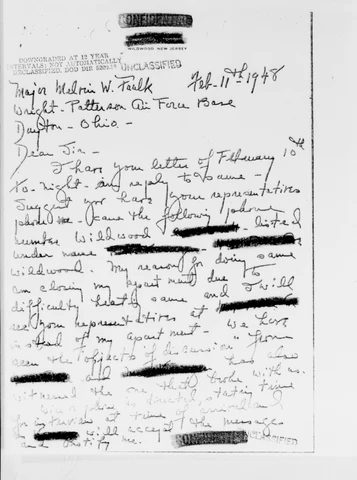 CONFIDENTIAL
WILDWOOD NEW JERSEY
DOWNGRADED AT 12 YEAR
INTERVALS; NOT AUTOMATICALLY
DECLASSIFIED. DOD DIR 5200.10
UNCLASSIFIED
Feb-11th-1948
Major Melvin W. Faulk
Wright-Patterson Air Force Base
Dayton-Ohio.-
Dear Sir-
I have your letter of February 10th
to-night and reply to same-
Suggest you have your representatives
phone me - the following phone
number Wildwood listed
under name
Wildwood. My reason for doing same
am closing my apartment due to
difficulty heating same and I will
see your representatives at
instead of my apartment - We have
seen the objects of discussion
and has also
witnessed the one that broke with us.
stating time
for interview at time of arrival and
will accept the messages
and notify me.
UNCLASSIFIED